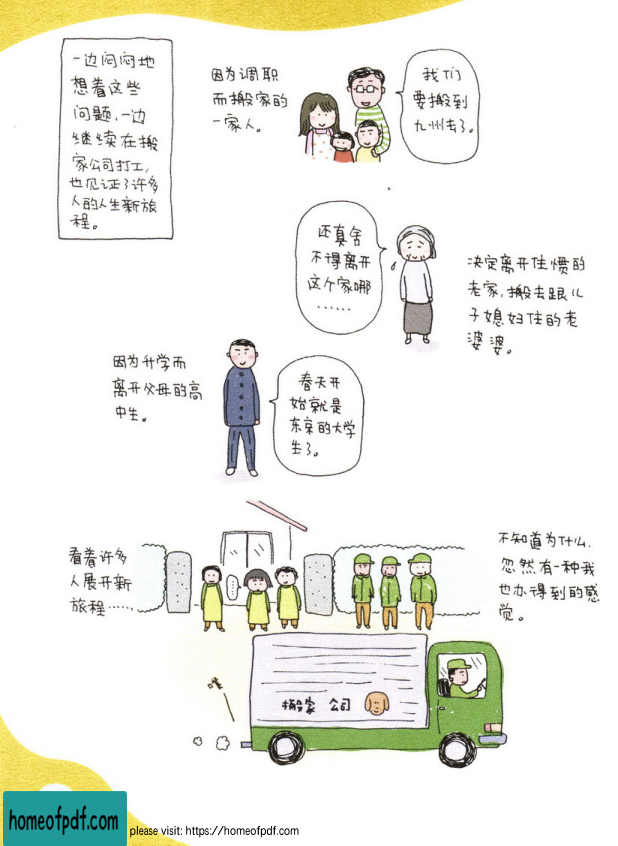 一边闷闷地
想着这些
问题,一边
继续在搬
家公司打工,
也见证了许多
人的人生新旅
程。
因为调职
而搬家的
一家人。
我们
要搬到
九州去了。
还真舍
不得离开
这个家哪
······
决定离开住惯的
老家,搬去跟儿
子媳妇住的老
婆婆。
因为升学而
离开父母的高
中生。
春天开
始就是
东京的大学
生了。
看着许多
人展开新
旅程······
不知道为什么,
忽然有一种我
也办得到的感
觉。
搬家公司
homeofpdf.com
please visit: https://homeofpdf.com